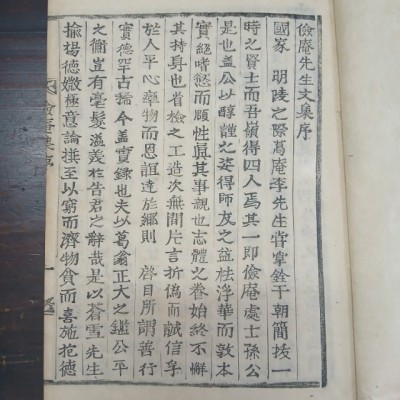 儉庵先生文集序
國家 明陵之際葛庵李先生嘗掌銓于 朝簡拔一
時之賢士而吾嶺得四人焉其一即儉庵處士孫公
是也蓋公以醇謹之姿得師友之益祛浮華而敦本
實絕嗜慾而順性眞其事親也志體之養始終不懈
其持身也省檢之工造次無間片言折僞而誠信孚
於人平心率物而恩誼達於鄉則 啓目所謂善行
實德罕古稀今蓋實錄也夫以葛翁正大之鑑公平
之衡豈有毫髮溢美於告君之辭哉是以蒼雪先生
揄揚德媺極意論撰至以窮而濟物貧而喜施抱德
儉庵集序 一